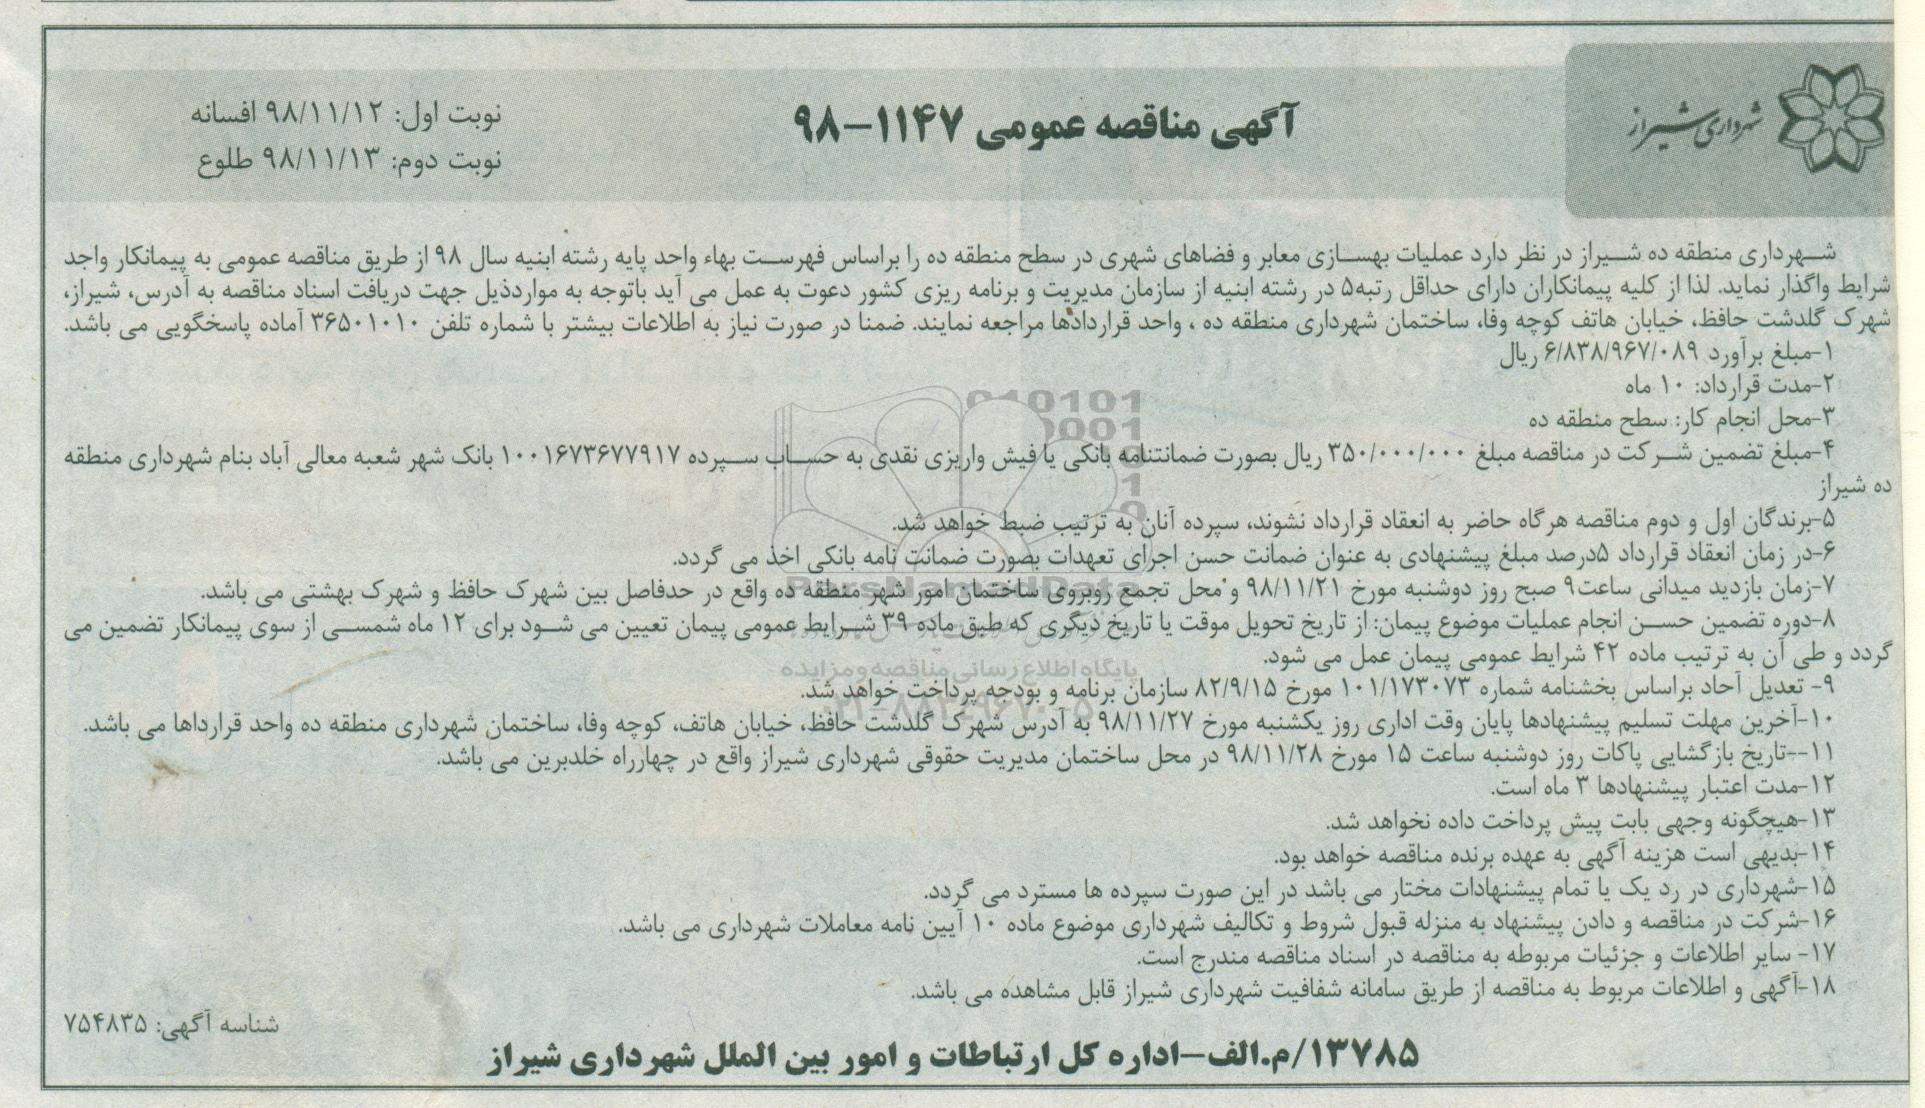 شهرداری شیراز
آگهی مناقصه عمومی ۱۱۴۷-۹۸
نوبت اول: ۹۸/۱۱/۱۲ افسانه
نوبت دوم: ۹۸/۱۱/۱۳ طلوع
شهرداری منطقه ده شیراز در نظر دارد عملیات بهسازی معابر و فضاهای شهری در سطح منطقه ده را براساس فهرست بهاء واحد پایه رشته ابنیه سال ۹۸ از طریق مناقصه عمومی به پیمانکار واجد
شرایط واگذار نماید. لذا از کلیه پیمانکاران دارای حداقل رتبه۵ در رشته ابنیه از سازمان مدیریت و برنامه ریزی کشور دعوت به عمل می آید باتوجه به مواردذیل جهت دریافت اسناد مناقصه به آدرس، شیراز،
شهرک گلدشت حافظ، خیابان هاتف کوچه وفا، ساختمان شهرداری منطقه ده ، واحد قراردادها مراجعه نمایند. ضمنا در صورت نیاز به اطلاعات بیشتر با شماره تلفن ۳۶۵۰۱۰۱۰ آماده پاسخگویی می باشد.
۱-مبلغ برآورد ۶/۸۳۸/۹۶۷/۰۸۹ ریال
۲-مدت قرارداد: ۱۰ ماه
۳-محل انجام کار: سطح منطقه ده
۴-مبلغ تضمین شرکت در مناقصه مبلغ ۳۵۰/۰۰۰/۰۰۰ ریال بصورت ضمانتنامه بانکی یا فیش واریزی نقدی به حساب سپرده ۱۰۰۱۶۷۳۶۷۷۹۱۷ بانک شهر شعبه معالی آباد بنام شهرداری منطقه
ده شیراز
۵-برندگان اول و دوم مناقصه هرگاه حاضر به انعقاد قرارداد نشوند، سپرده آنان به ترتیب ضبط خواهد شد.
۶-در زمان انعقاد قرارداد ۵درصد مبلغ پیشنهادی به عنوان ضمانت حسن اجرای تعهدات بصورت ضمانت نامه بانکی اخذ می گردد.
۷-زمان بازدید میدانی ساعت۹ صبح روز دوشنبه مورخ ۹۸/۱۱/۲۱ و محل تجمع روبروی ساختمان امور شهر منطقه ده واقع در حدفاصل بین شهرک حافظ و شهرک بهشتی می باشد.
۸-دوره تضمین حسن انجام عملیات موضوع پیمان: از تاریخ تحویل موقت یا تاریخ دیگری که طبق ماده ۳۹ شرایط عمومی پیمان تعیین می شود برای ۱۲ ماه شمسی از سوی پیمانکار تضمین می
گردد و طی آن به ترتیب ماده ۴۲ شرایط عمومی پیمان عمل می شود.
۹- تعدیل آحاد براساس بخشنامه شماره ۱۰۱/۱۷۳۰۷۳ مورخ ۸۲/۹/۱۵ سازمان برنامه و بودجه پرداخت خواهد شد.
۱۰-آخرین مهلت تسلیم پیشنهادها پایان وقت اداری روز یکشنبه مورخ ۹۸/۱۱/۲۷ به آدرس شهرک گلدشت حافظ، خیابان هاتف، کوچه وفا، ساختمان شهرداری منطقه ده واحد قرارداها می باشد.
۱۱--تاریخ بازگشایی پاکات روز دوشنبه ساعت ۱۵ مورخ ۹۸/۱۱/۲۸ در محل ساختمان مدیریت حقوقی شهرداری شیراز واقع در چهارراه خلدبرین می باشد.
۱۲-مدت اعتبار پیشنهادها ۳ ماه است.
۱۳-هیچگونه وجهی بابت پیش پرداخت داده نخواهد شد.
۱۴-بدیهی است هزینه آگهی به عهده برنده مناقصه خواهد بود.
۱۵-شهرداری در رد یک یا تمام پیشنهادات مختار می باشد در این صورت سپرده ها مسترد می گردد.
۱۶-شرکت در مناقصه و دادن پیشنهاد به منزله قبول شروط و تکالیف شهرداری موضوع ماده ۱۰ آیین نامه معاملات شهرداری می باشد.
۱۷- سایر اطلاعات و جزئیات مربوطه به مناقصه در اسناد مناقصه مندرج است.
۱۸-آگهی و اطلاعات مربوط به مناقصه از طریق سامانه شفافیت شهرداری شیراز قابل مشاهده می باشد.
شناسه آگهی: ۷۵۴۸۳۵
۱۳۷۸۵/م.الف-اداره کل ارتباطات و امور بین الملل شهرداری شیراز
ParsNamadData
پایگاه اطلاع رسانی مناقصه و مزایده